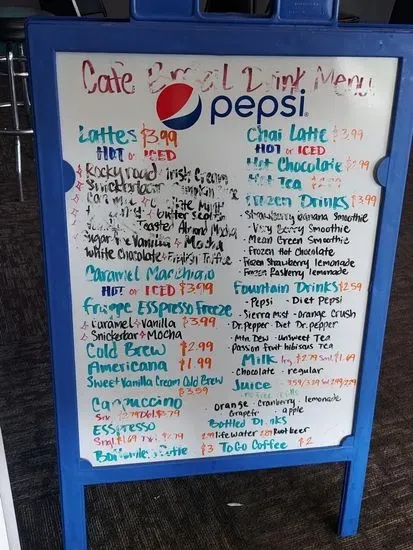 Cafe Drink Menu
pepsi
Lattes $3.99
HOT or ICED
Rocky road Irish Cream
Snickerbar
Mint
butter scotch
Toasted Almond Mocha
Sugar free Vanilla Mocha
White Chocolate English Toffee
Caramel Macchiato
HOT or ICED $3.99
Frappe ESSpresso Freeze
Caramel Vanilla $3.99
Snickerbar Mocha
Cold Brew $2.99
Americana $1.99
Sweet Vanilla Cream Cold Brew
$3.59
Cappuccino
ESSpresso
Smal $1.69
Chai Latte $3.99
HOT or ICED
Hot Chocolate $2.99
Hot Tea
Frozen Drinks $3.99
- Strawberry banana Smoothie
- Very Berry Smoothie
- Mean Green Smoothie
- Frozen Hot Chocolate
- Frozen Strawberry lemonade
- Frozen Rasberry lemonade
Fountain Drinks $2.59
- Pepsi - Diet Pepsi
- Sierra Mist - Orange Crush
- Dr. Pepper - Diet Dr. Pepper
- Mtn Dew - Unsweet Tea
- Passion Fruit hibiscus Tea
Milk lrg $2.79 Sml $1.69
- Chocolate - regular
Juice
- orange - Cranberry - lemonade
- apple
Bottled Drinks
2.99 life water 2.89 Root beer
$3 To Go Coffee $2